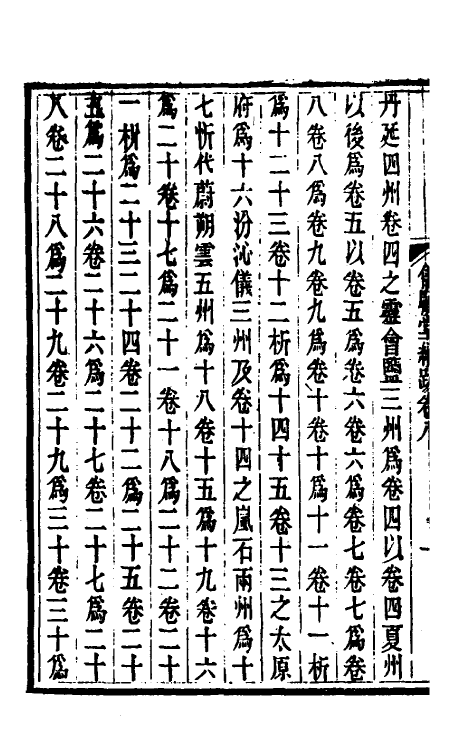 丹延四州卷四之靈會鹽三州爲卷四以卷四夏州
以後爲卷五以卷五爲卷六卷六爲卷七卷七爲卷
八卷八爲卷九卷九爲卷十卷十爲十一卷十一析
爲十二十三卷十二析爲十四十五卷十三之太原
府爲十六汾沁儀三州及卷十四之嵐石兩州爲十
七忻代蔚朔雲五州爲十八卷十五爲十九卷十六
爲二十卷十七爲二十一卷十八爲二十二卷二十
一析爲二十三二十四卷二十二爲二十五卷二十
五爲二十六卷二十六爲二十七卷二十七爲二十
八卷二十八爲二十九卷二十九爲三十卷三十爲
儀顧堂續跋卷八